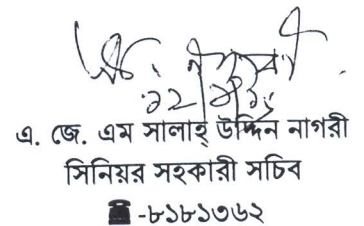 এ. জে. এম সালাহ্ উদ্দিন নাগরী
সিনিয়র সহকারী সচিব
☎-৮১৮১৩৬২